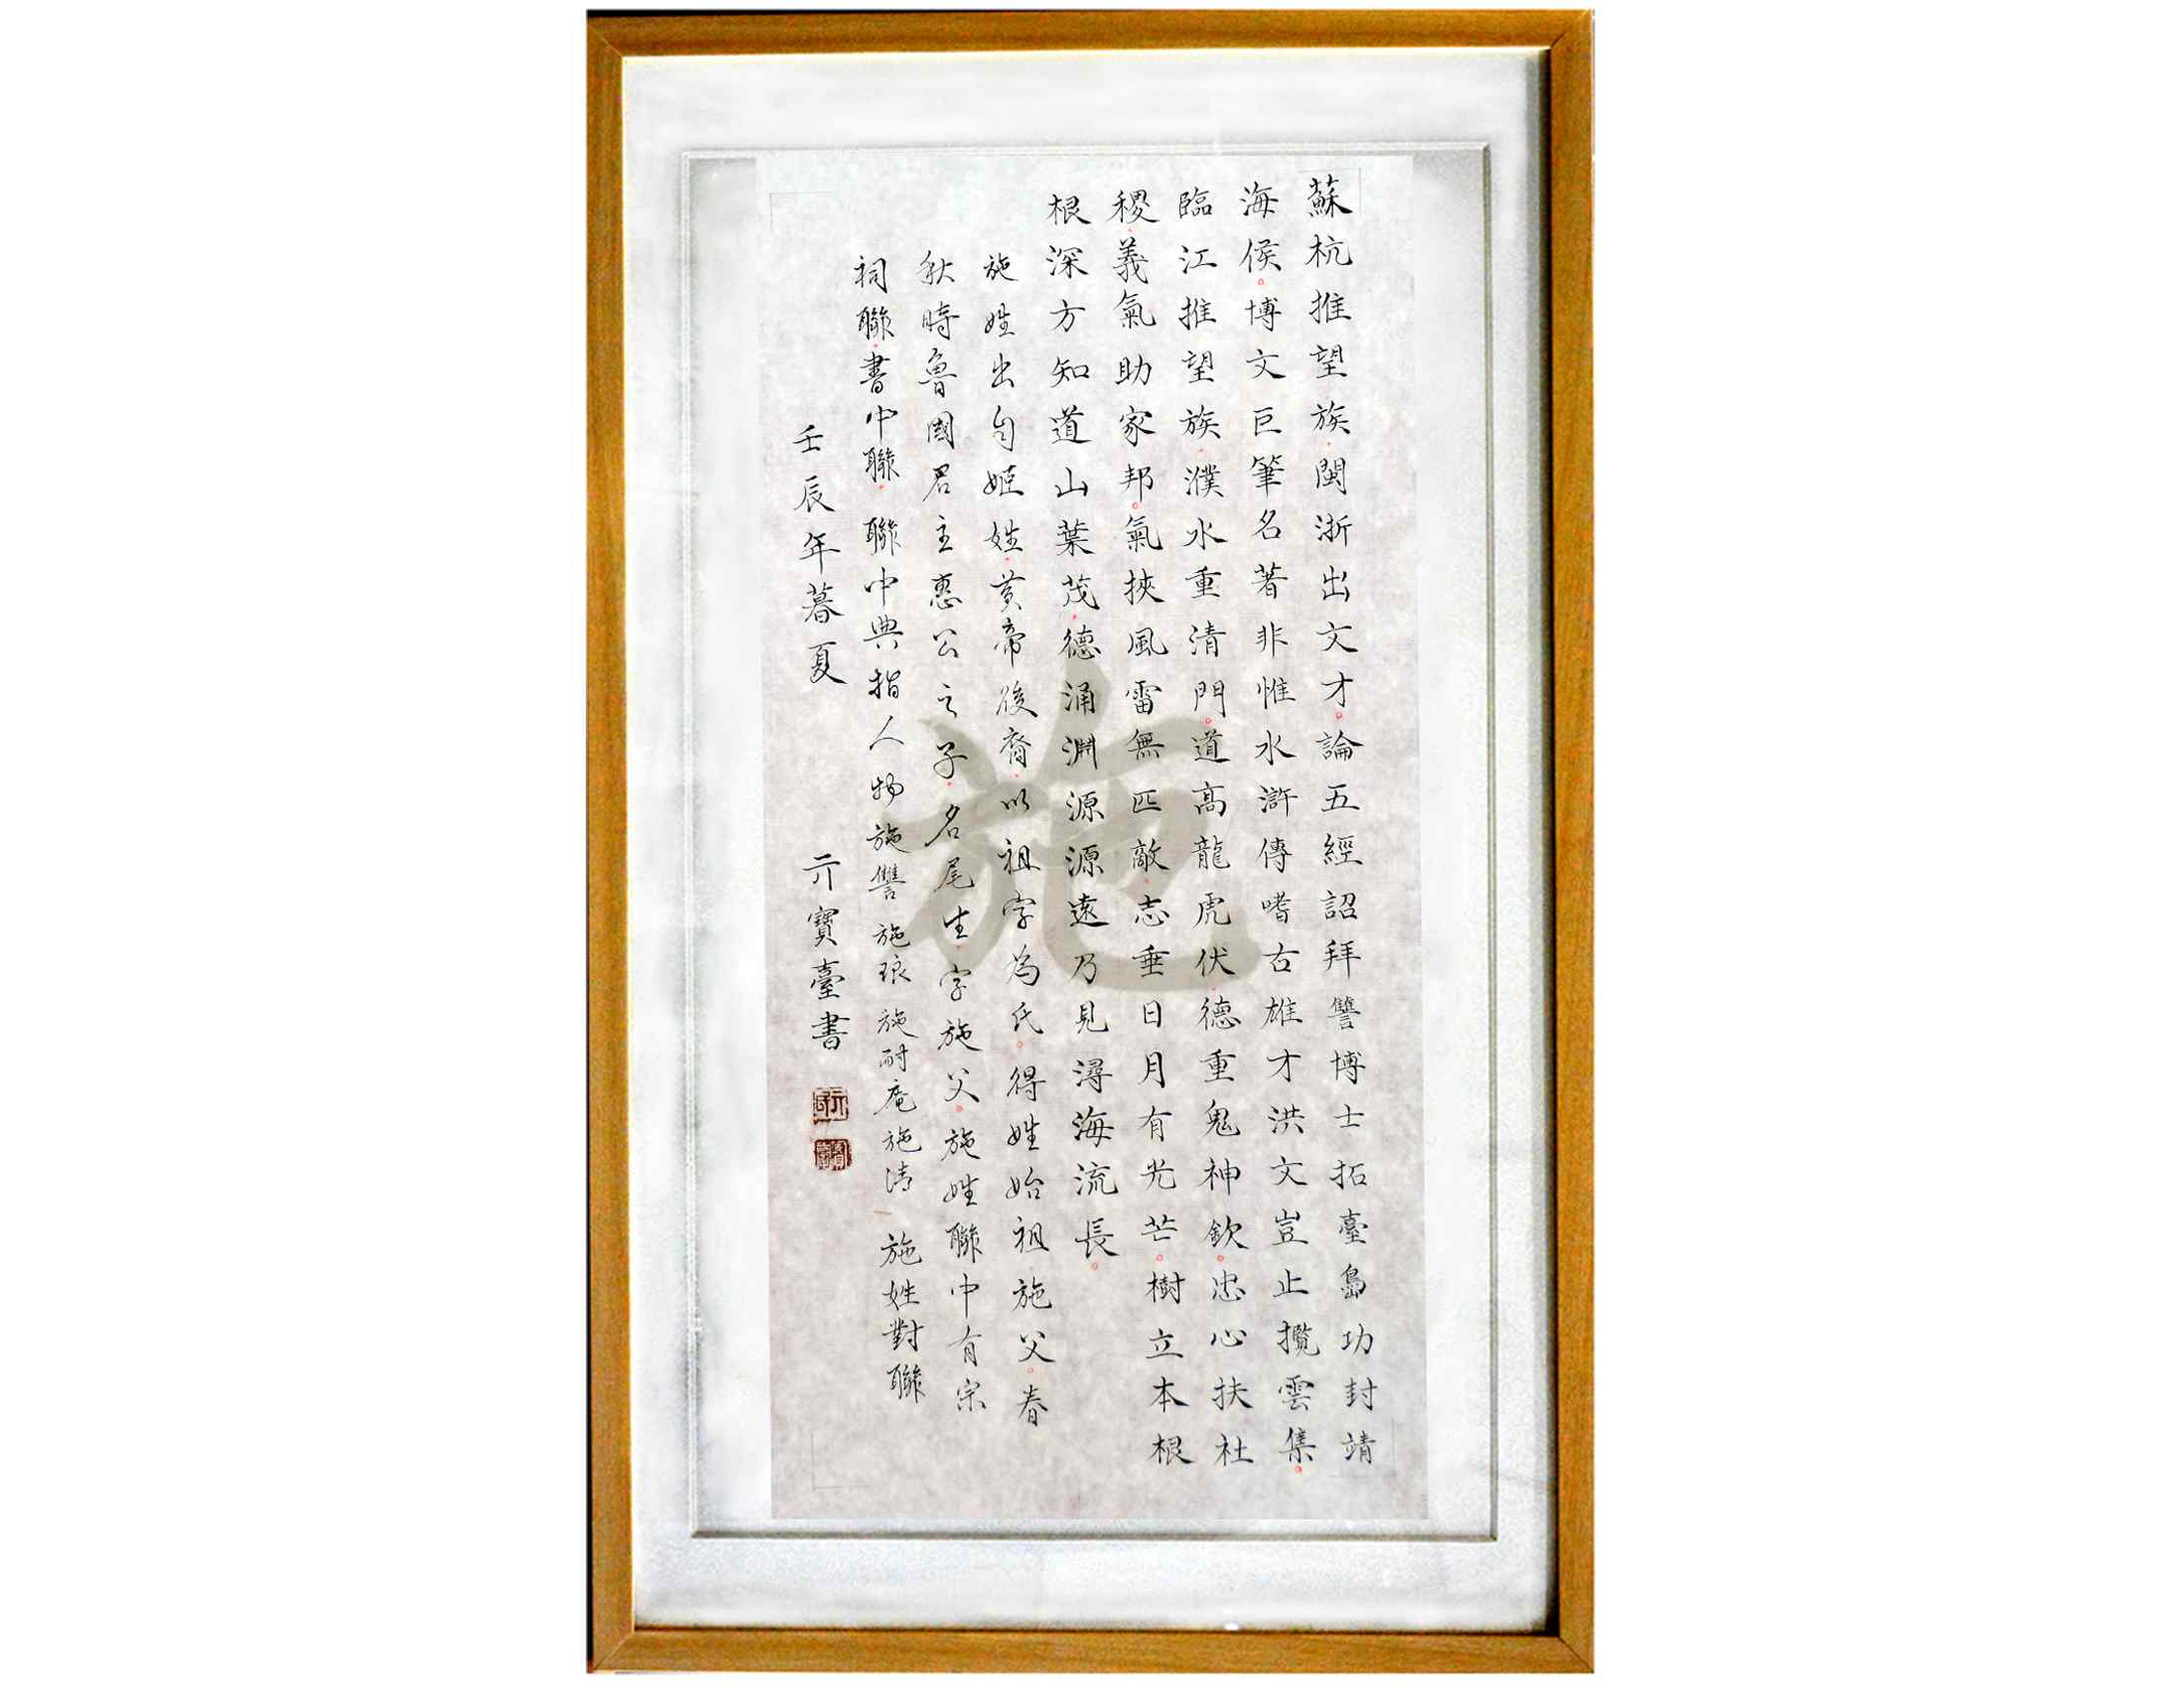 蘇杭推望族閩浙出文才。論五經詔拜讐博士拓臺島功封靖
海侯。博文巨筆名著非惟水滸傳嗜古雄才洪文豈止攬雲集。
臨江推望族濮水重清門。道高龍虎伏德重鬼神欽。忠心扶社
稷義氣助家邦。氣挾風雷無匹敵志垂日月有光芒。樹立本根
根深方知道山葉茂德涌淵源源遠乃見潯海流長。
施姓出自姬姓黃帝後裔以祖字為氏。得姓始祖施父。春
秋時魯國君主惠公之子名尾生字施父。施姓聯中有宗
祠聯書中聯聯中典指人物施讐施琅施耐庵施清施姓對聯
壬辰年暮夏 亓寶臺書
施